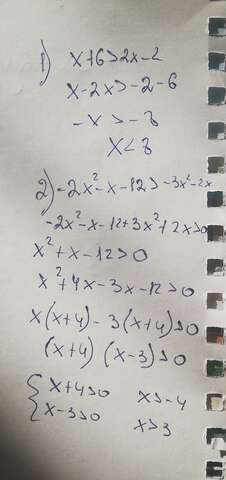 1) x+6>2x-2
x-2x>-2-6
-x>-8
x<8
2) -2x²-x-12>-3x²-2x
-2x²-x-12+3x²+2x>0
x²+x-12>0
x²+4x-3x-12>0
x(x+4)-3(x+4)>0
(x+4)(x-3)>0
{x+4>0 x>-4
x-3>0 x>3